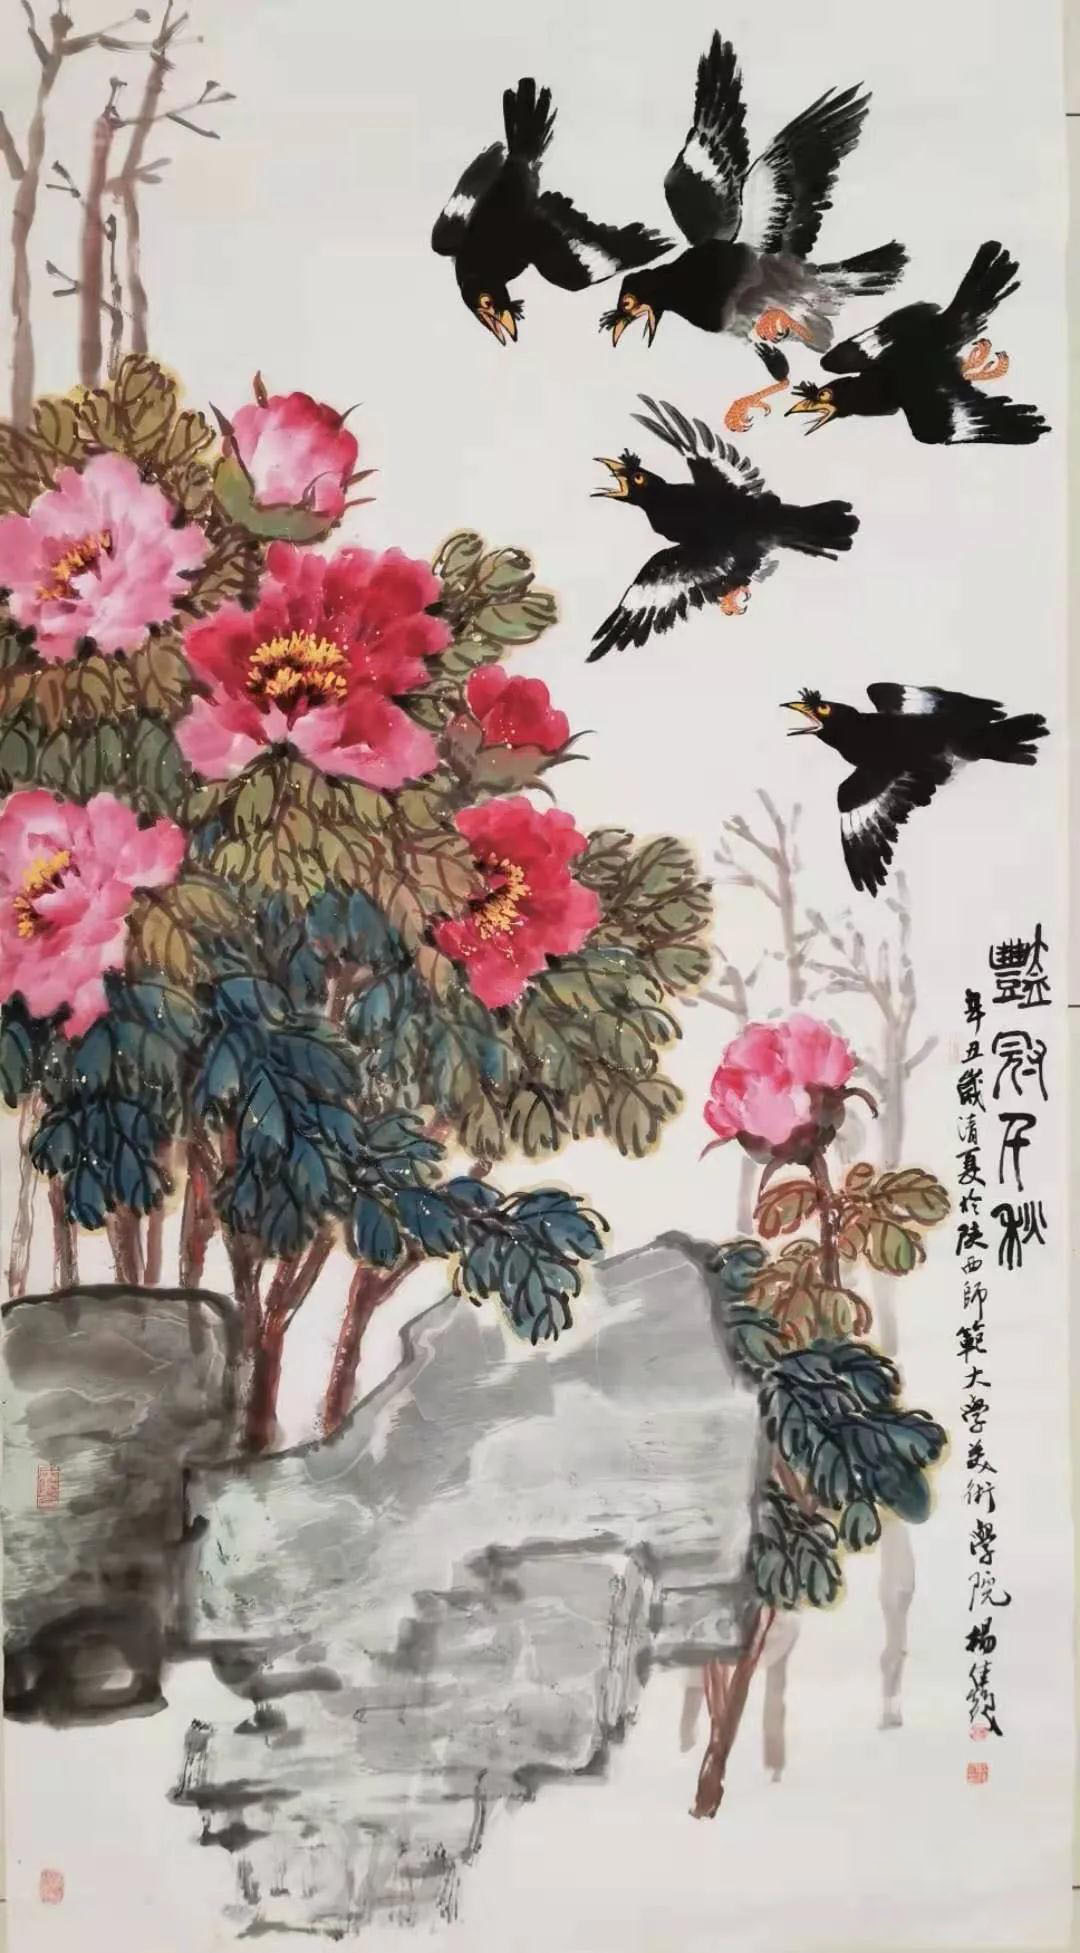 豔冠千秋
辛丑歲清夏於陕西師範大學美術學院楊